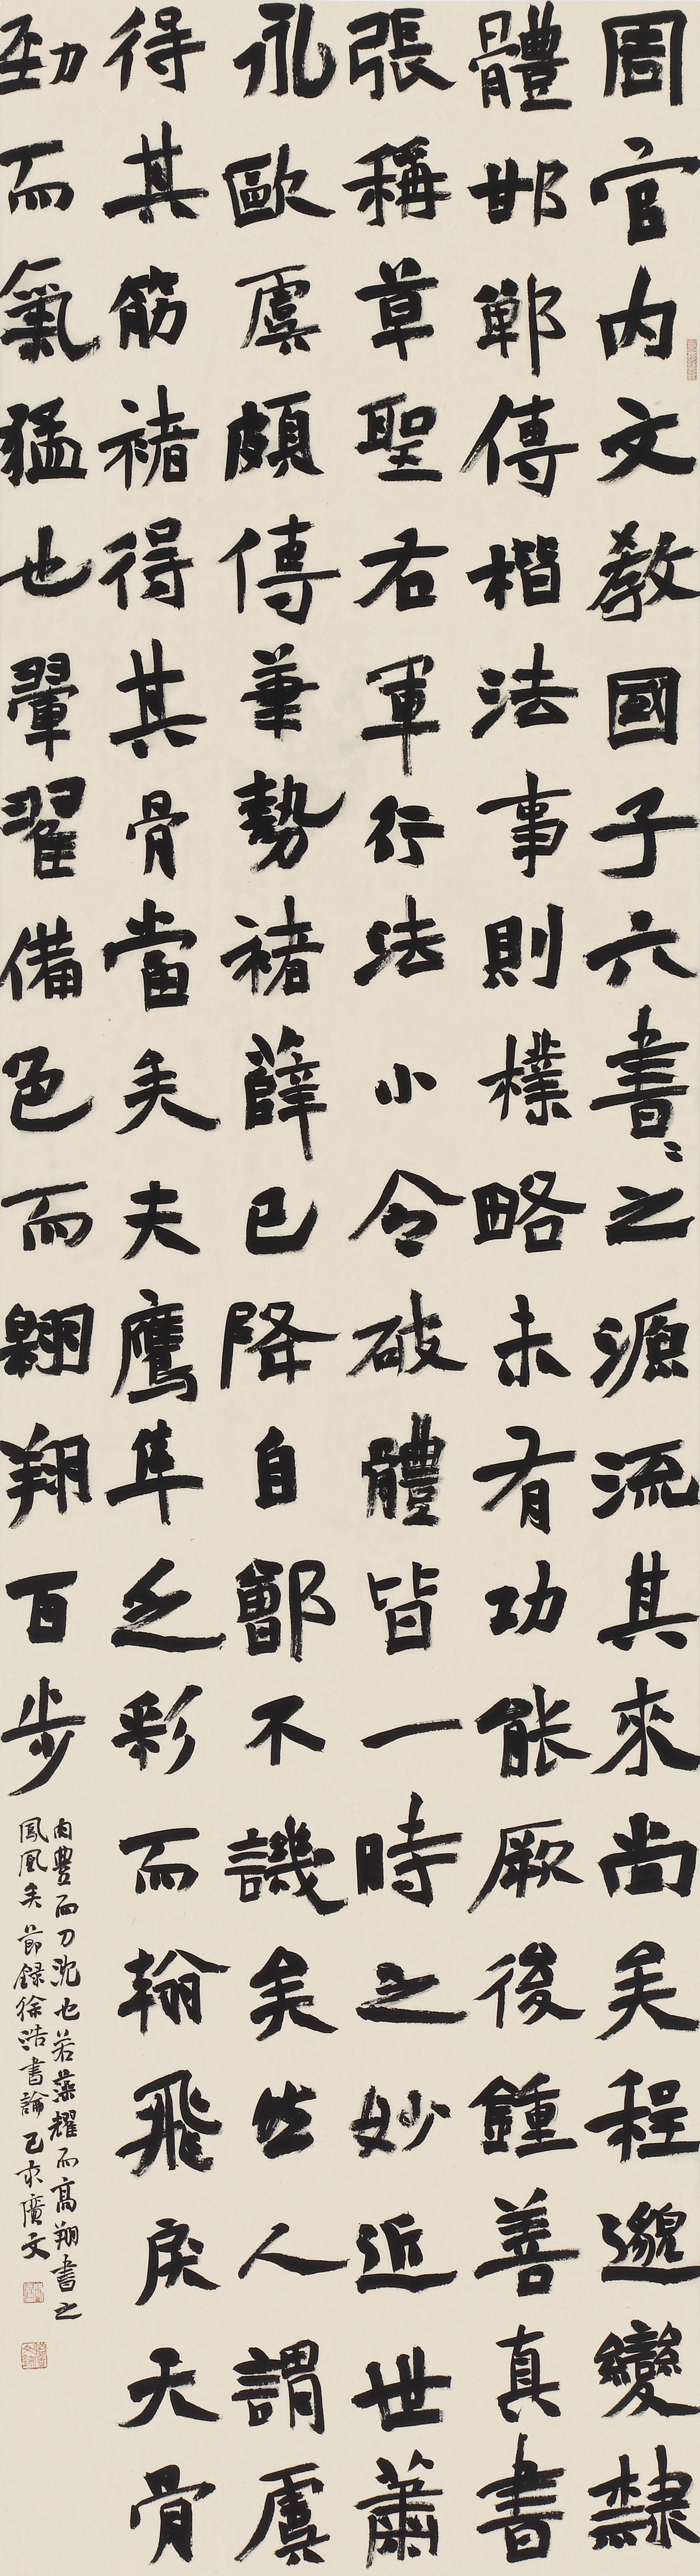 周官内文教國子六書〻之源流其來尚矣程邈變隸
體邯鄲傳楷法事則樸略未有功能厥後鍾善真書
張稱草聖右軍行法小令破體皆一時之妙近世蕭
永歐虞頗傳筆勢褚薛已降自鄶不譏矣然人謂虞
得其筋褚得其骨當矣夫鷹隼乏彩而翰飛戾天骨
勁而氣猛也翬翟備色而翱翔百步
肉豊而力沈也若藻耀而高翔書之
鳳凰矣節録徐浩書論己亥廣文